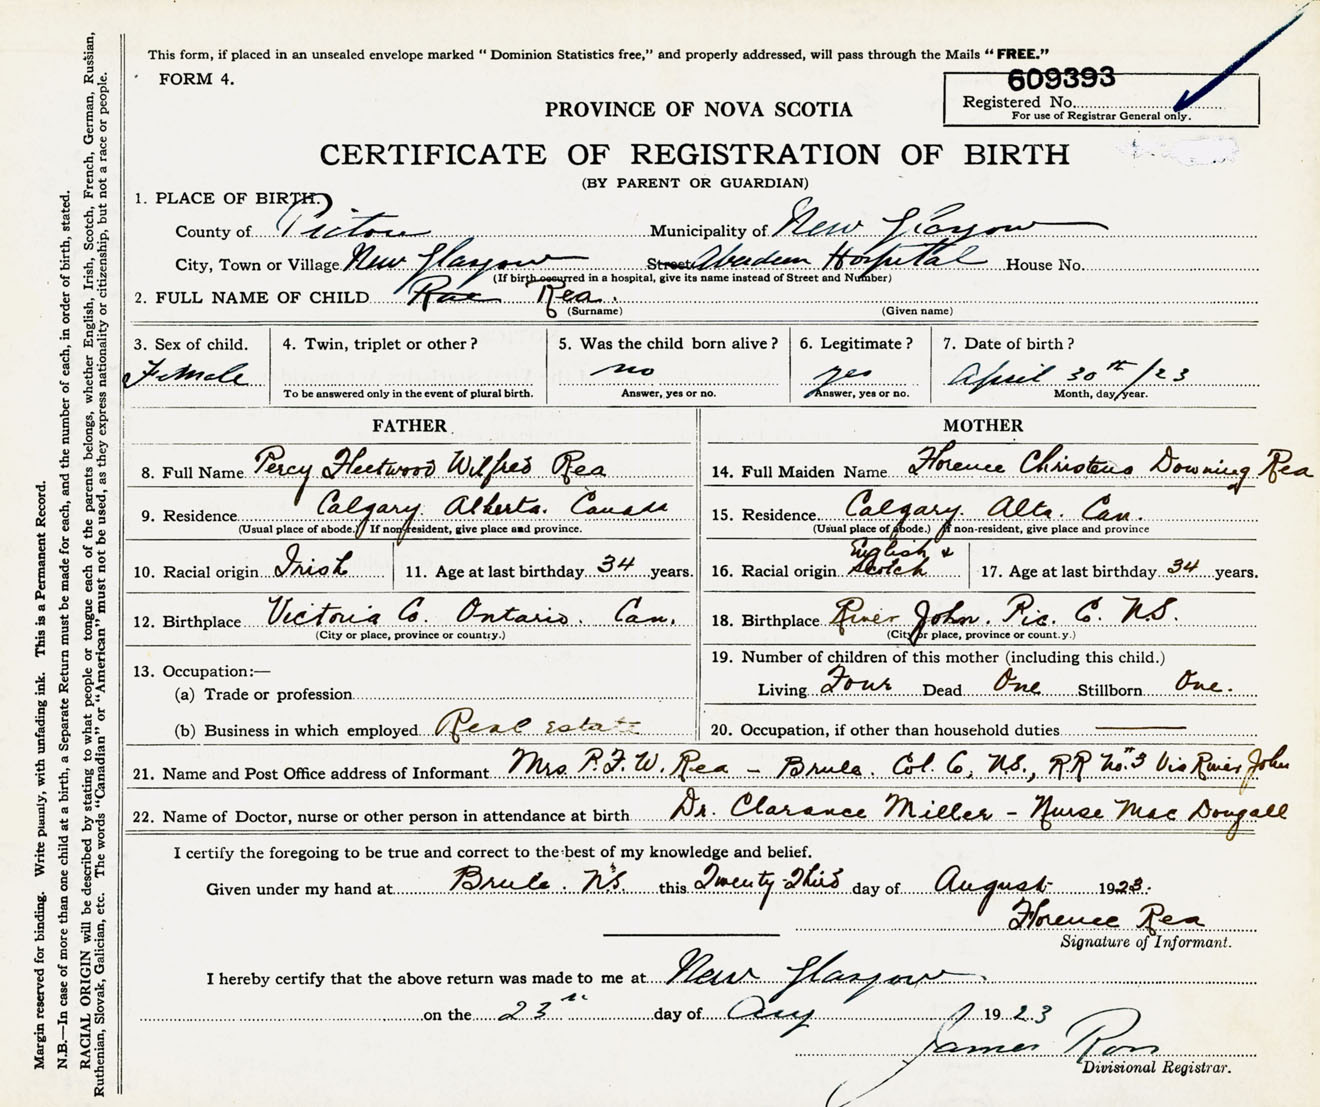 This form, if placed in an unsealed envelope marked " Dominion Statistics free," and properly addressed, will pass through the Mails " FREE."
FORM 4.
609393
Registered No.
For use of Registrar General only.
PROVINCE OF NOVA SCOTIA
CERTIFICATE OF REGISTRATION OF BIRTH
(BY PARENT OR GUARDIAN)
1. PLACE OF BIRTH.
County of Pictou Municipality of New Glasgow
City, Town or Village New Glasgow Street Aberdeen Hospital House No.
(If birth occurred in a hospital, give its name instead of Street and Number)
2. FULL NAME OF CHILD Rae Rea.
(Surname) (Given name)
3. Sex of child. 4. Twin, triplet or other ? 5. Was the child born alive ? 6. Legitimate ? 7. Date of birth ?
Female no yes April 30th/23
To be answered only in the event of plural birth. Answer, yes or no. Answer, yes or no. Month, day, year.
FATHER MOTHER
8. Full Name Percy Fleetwood Wilfred Rea 14. Full Maiden Name Florence Christena Downing Rea
9. Residence Calgary. Alberta. Canada 15. Residence Calgary. Alta. Can.
(Usual place of abode.) If non-resident, give place and province. (Usual place of abode.) If non-resident, give place and province
10. Racial origin Irish 11. Age at last birthday 34 years. 16. Racial origin English & Scotch 17. Age at last birthday 34 years.
12. Birthplace Victoria Co. Ontario. Can. 18. Birthplace River John. Pic. C. N.S.
(City or place, province or country.) (City or place, province or count.y.)
13. Occupation:— 19. Number of children of this mother (including this child.)
(a) Trade or profession Living Four Dead One Stillborn One.
(b) Business in which employed Real estate 20. Occupation, if other than household duties ———
21. Name and Post Office address of Informant Mrs. P.F.W. Rea – Brule. Col. C, N.S., R.R No. 3 Via River John
22. Name of Doctor, nurse or other person in attendance at birth Dr. Clarance Miller – Nurse MacDougall
I certify the foregoing to be true and correct to the best of my knowledge and belief.
Given under my hand at Brule. N.S. this Twenty Third day of August 1923.
Florence Rea
Signature of Informant.
I hereby certify that the above return was made to me at New Glasgow
on the 23rd day of Aug 1923
James Ron
Divisional Registrar.
Margin reserved for binding. Write plainly, with unfading ink. This is a Permanent Record.
N.B.—In case of more than one child at a birth, a Separate Return must be made for each, and the number of each, in order of birth, stated.
RACIAL ORIGIN will be described by stating to what people or tongue each of the parents belongs, whether English, Irish, Scotch, French, German, Russian,
Ruthenian, Slovak, Galician, etc. The words "Canadian" or "American" must not be used, as they express nationality or citizenship, but not a race or people.